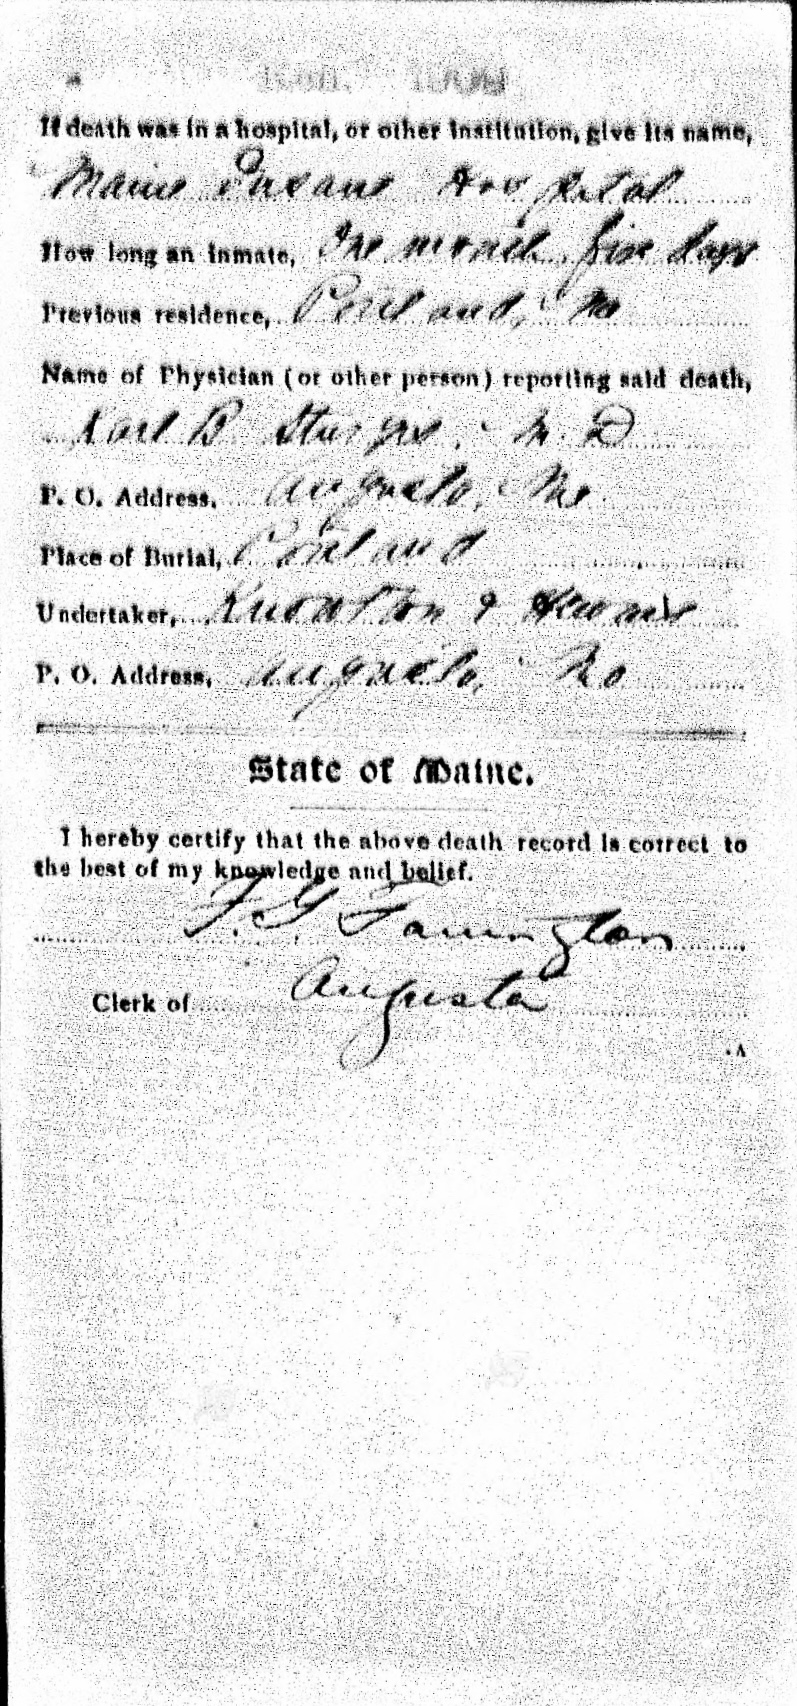 If death was in a hospital, or other institution, give its name,
Maine Insane Hospital
How long an inmate, One month five days
Previous residence, Portland, Me
Name of Physician (or other person) reporting said death,
Karl B Sturgis, M. D
P. O. Address, Augusta, Me
Place of Burial, Portland
Undertaker, Knowlton &
P. O. Address, Augusta, Me
State of Maine.
I hereby certify that the above death record is correct to
the best of my knowledge and belief.
F. G. Farrington
Clerk of Augusta